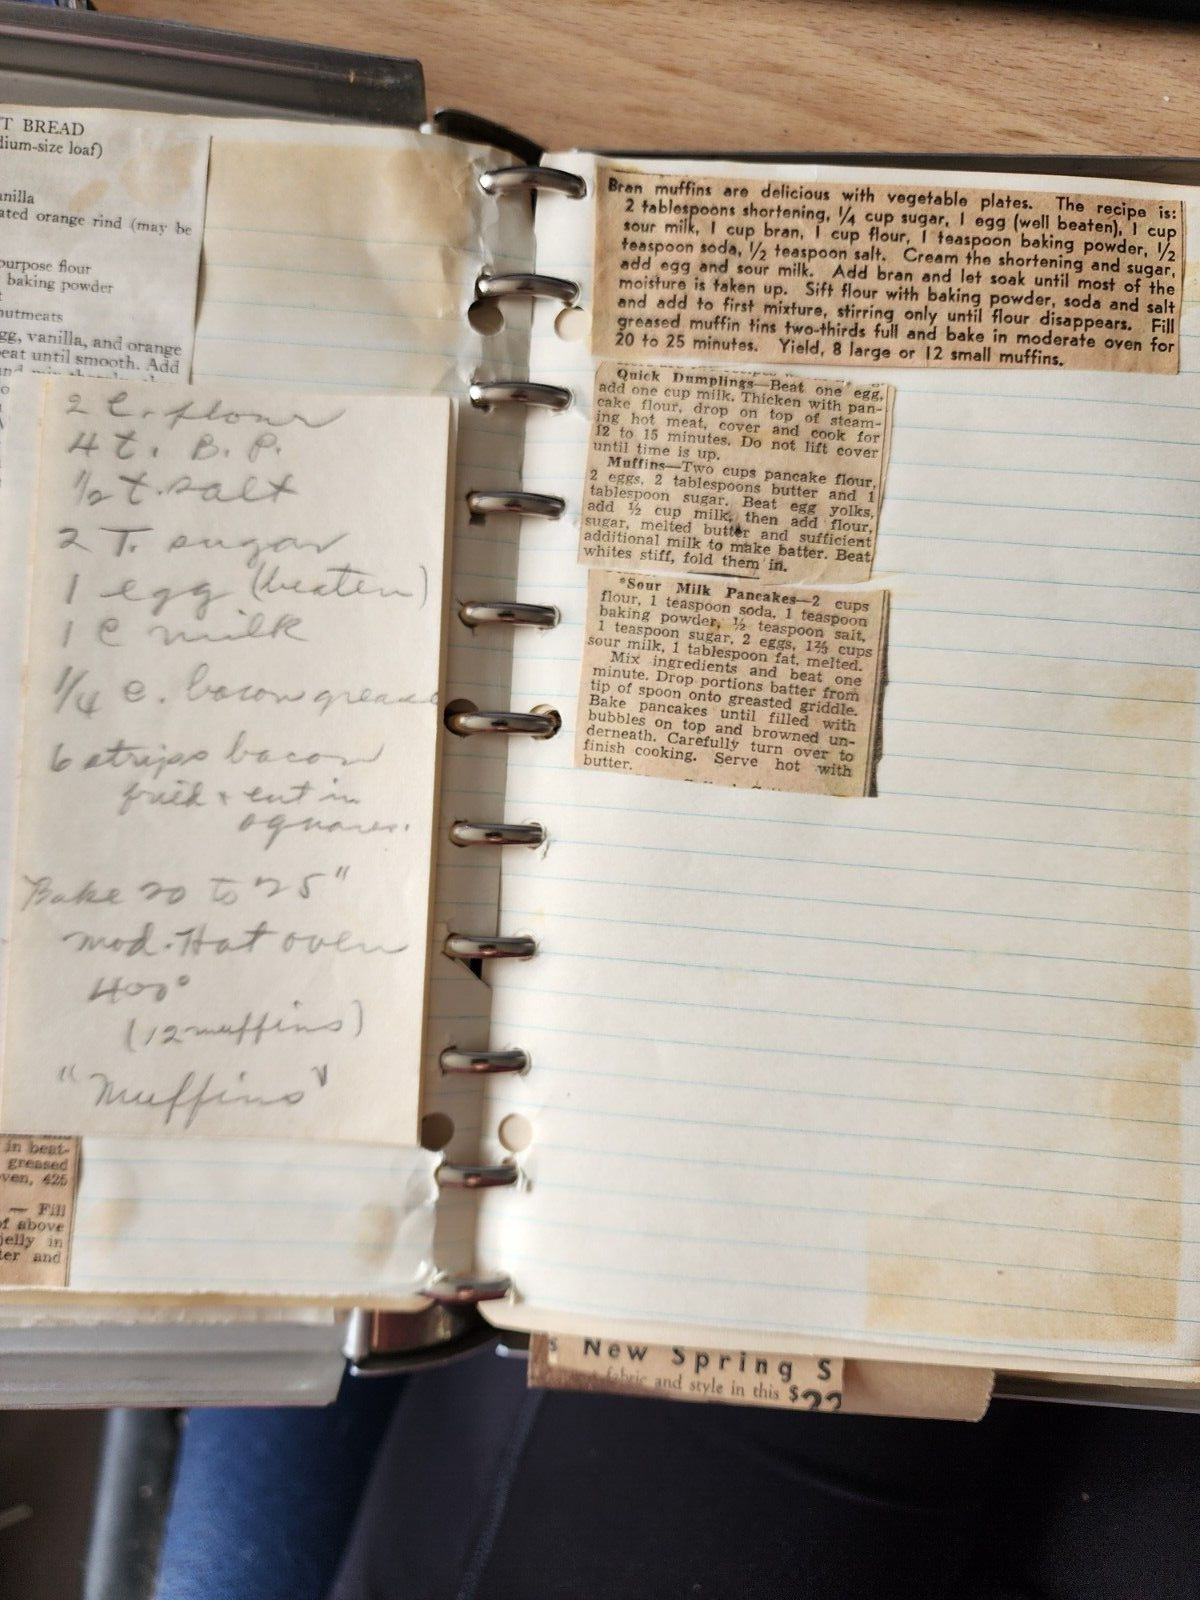 T BREAD
dium-size loaf)
anilla
ated orange rind (may be
ourpose flour
baking powder
t
nutmeats
gg, vanilla, and orange
eat until smooth. Add
2 C. flour
4 t. B. P.
1/2 t. salt
2 T. sugar
1 egg (beaten)
1 C milk
1/4 c. bacon grease
6 strips bacon
fried + cut in
squares.
Bake 20 to 25"
mod. Hot oven
400°
(12 muffins)
"Muffins"
in beat-
greased
ven, 425
— Fill
of above
jelly in
ter and
Bran muffins are delicious with vegetable plates. The recipe is:
2 tablespoons shortening, 1/4 cup sugar, 1 egg (well beaten), 1 cup
sour milk, 1 cup bran, 1 cup flour, 1 teaspoon baking powder, 1/2
teaspoon soda, 1/2 teaspoon salt. Cream the shortening and sugar,
add egg and sour milk. Add bran and let soak until most of the
moisture is taken up. Sift flour with baking powder, soda and salt
and add to first mixture, stirring only until flour disappears. Fill
greased muffin tins two-thirds full and bake in moderate oven for
20 to 25 minutes. Yield, 8 large or 12 small muffins.
Quick Dumplings—Beat one egg,
add one cup milk. Thicken with pan-
cake flour, drop on top of steam-
ing hot meat, cover and cook for
12 to 15 minutes. Do not lift cover
until time is up.
Muffins—Two cups pancake flour,
2 eggs, 2 tablespoons butter and 1
tablespoon sugar. Beat egg yolks,
add ½ cup milk, then add flour,
sugar, melted butter and sufficient
additional milk to make batter. Beat
whites stiff, fold them in.
*Sour Milk Pancakes—2 cups
flour, 1 teaspoon soda, 1 teaspoon
baking powder, ½ teaspoon salt,
1 teaspoon sugar, 2 eggs, 1⅔ cups
sour milk, 1 tablespoon fat, melted.
Mix ingredients and beat one
minute. Drop portions batter from
tip of spoon onto greasted griddle.
Bake pancakes until filled with
bubbles on top and browned un-
derneath. Carefully turn over to
finish cooking. Serve hot with
butter.
s New Spring S
fabric and style in this $22